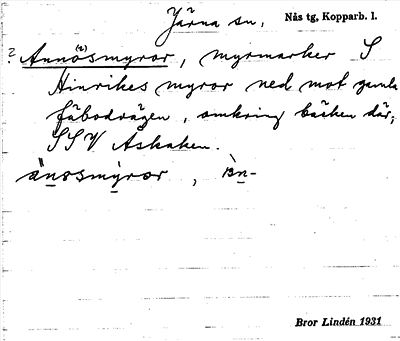 Järna sn, Nås tg, Kopparb. l.
? Annösmyror, myrmarker S
Hinrikes myror ned mot gamla
fäbodvägen, omkring bäcken där;
SSV Åskaken.
änosmýror,
Bror Lindén 1931